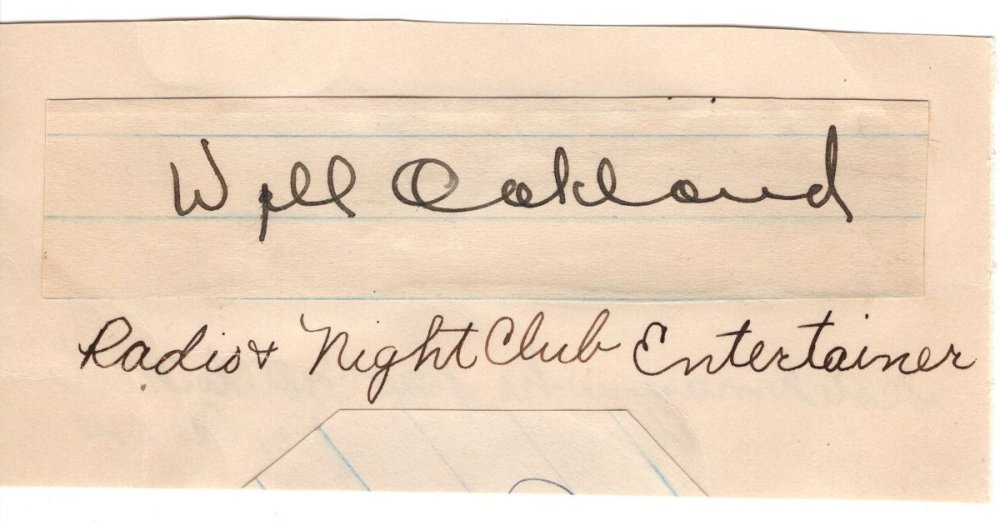 Will Oakland
Radio & Night Club Entertainer